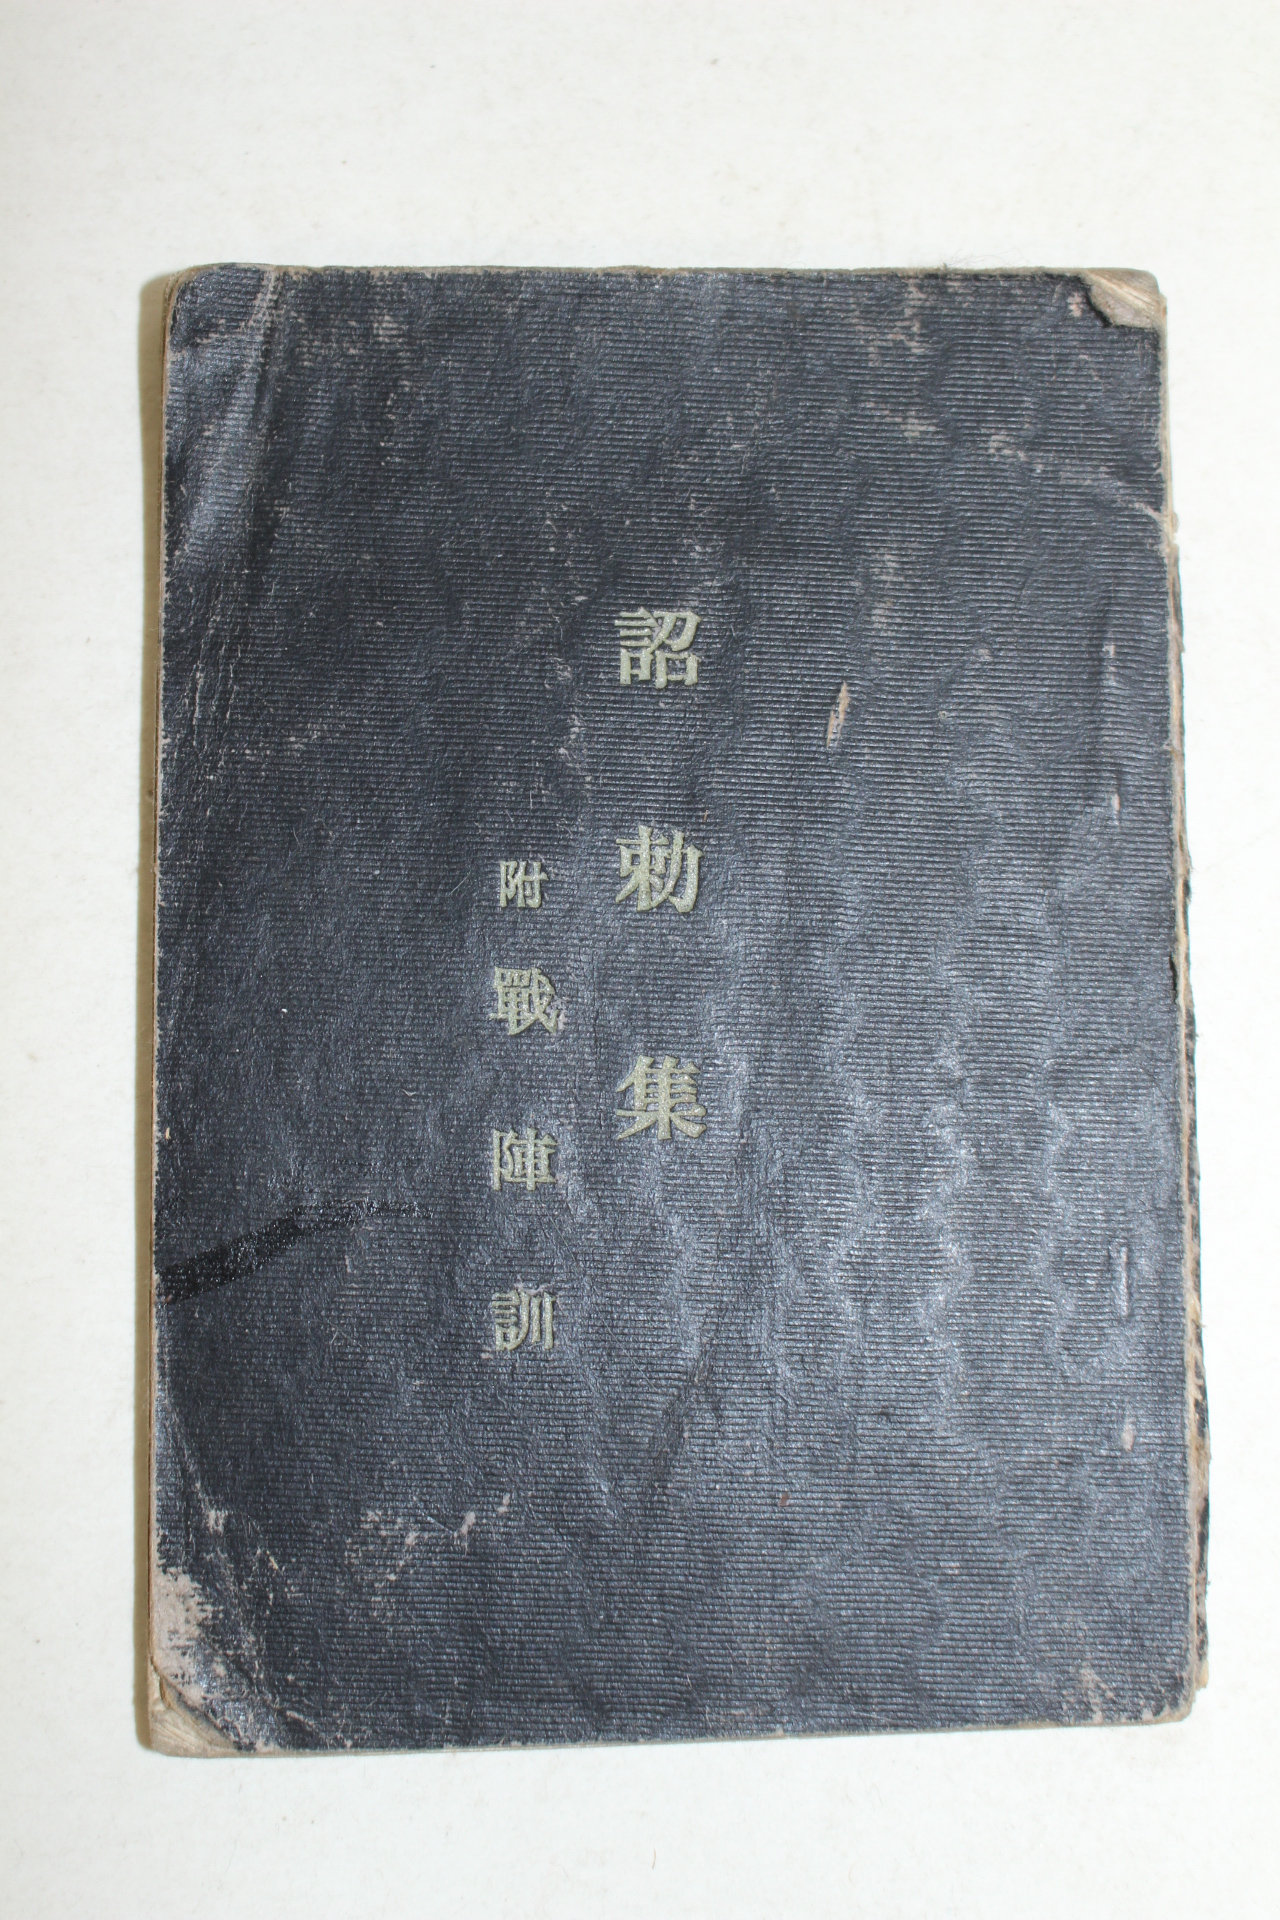 詔勅集
附戰陣訓